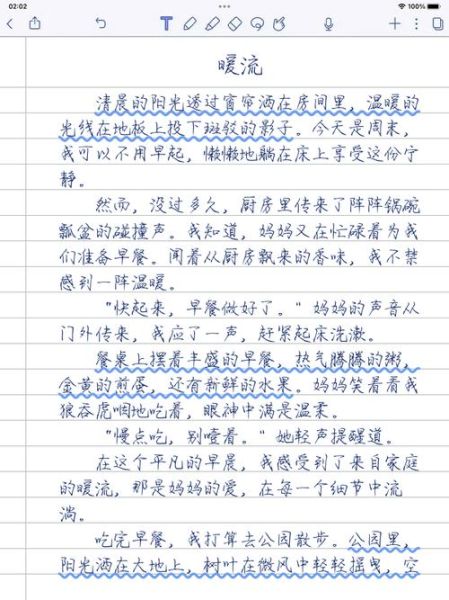 02:02
100%
暖流
清晨的阳光透过窗帘洒在房间里，温暖的
光线在地板上投下斑驳的影子。今天是周末，
我可以不用早起，懒懒地躺在床上享受这份宁
静。
然而，没过多久，厨房里传来了阵阵锅碗
瓢盆的碰撞声。我知道，妈妈又在忙碌着为我
们准备早餐。闻着从厨房飘来的香味，我不禁
感到一阵温暖。
"快起来，早餐做好了。"妈妈的声音从
门外传来，我应了一声，赶紧起床洗漱。
餐桌上摆着丰盛的早餐，热气腾腾的粥，
金黄的煎蛋，还有新鲜的水果。妈妈笑着看我
狼吞虎咽地吃着，眼神中满是温柔。
"慢点吃，别噎着。"她轻声提醒道。
在这个平凡的早晨，我感受到了来自家庭
的暖流，那是妈妈的爱，在每一个细节中流
淌。
吃完早餐，我打算去公园散步。公园里，
阳光洒在大地上，树叶在微风中轻轻摇曳，空